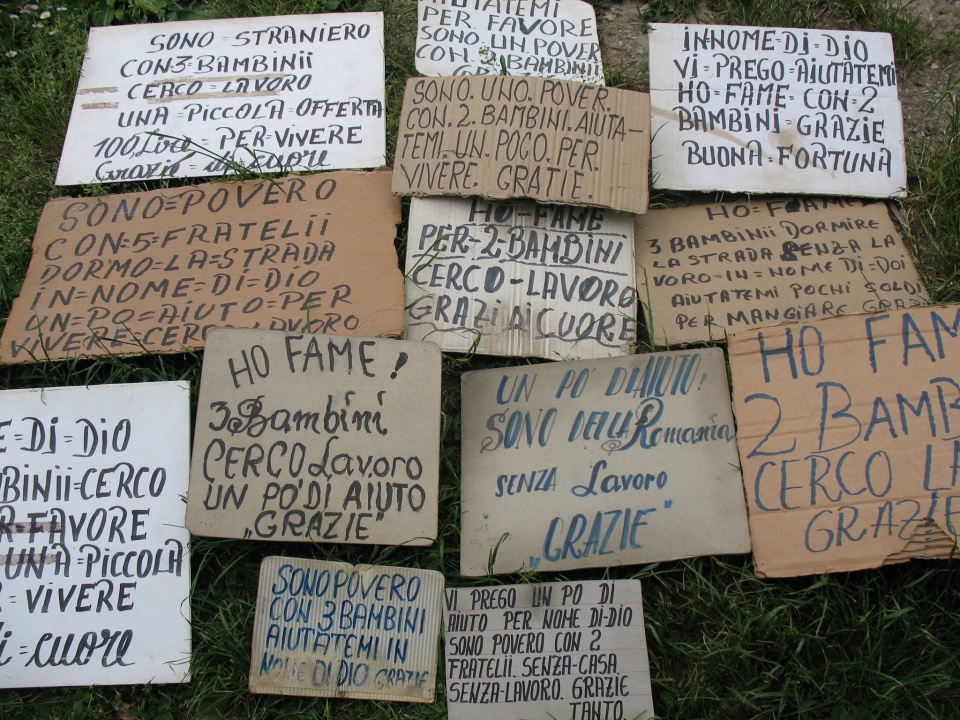 SONO = STRANIERO
CON=3=BAMBINII
CERCO = LAVORO
UNA = PICCOLA = OFFERTA
100,Lire PER = VIVERE
Grazie = di cuore
AIUTATEMI
PER FAVORE
SONO.UN.POVER
CON.2.BAMBINII
IN=NOME=DI=DIO
VI=PREGO=AIUTATEMI
HO=FAME=CON=2
BAMBINI=GRAZIE
BUONA=FORTUNA
SONO.UNO.POVER.
CON.2.BAMBINI.AIUTA-
TEMI.UN.POCO.PER.
VIVERE. GRATIE.
SONO=POVERO
CON=5=FRATELII
DORMO=LA=STRADA
IN=NOME=DI=DIO
UN=PO=AIUTO=PER
VIVERE=CERCO LAVORO
HO=FAME
PER=2=BAMBINI
CERCO=LAVORO
GRAZI Ai CUORE
HO=FOAME
3 BAMBINII DORMIRE
LA STRADA SENZA LA
VORO=IN=NOME DI=DOI
AIUTATEMI POCHI SOLDI
PER MANGIARE GRAZI
HO FAME!
3 Bambini
CERCO Lavoro
UN PO' DI AIUTO
„GRAZIE"
UN PO' DI AIUTO!
SONO DELLA Romania
SENZA Lavoro
„GRAZIE"
HO FAM
2 BAMB
CERCO LA
GRAZIE
E=DI=DIO
BINII=CERCO
R=FAVORE
UNA=PICCOLA
VIVERE
di=cuore
SONO POVERO
CON 3 BAMBINI
AIUTATEMI IN
NOME DI DIO GRAZIE
VI PREGO UN PO DI
AIUTO PER NOME DI-DIO
SONO POVERO CON 2
FRATELII. SENZA-CASA
SENZA-LAVORO. GRAZIE
TANTO.